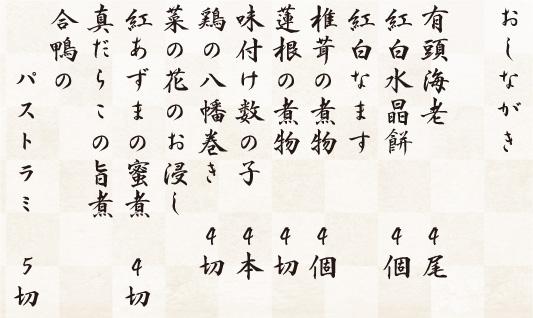 おしながき
有頭海老 4尾
紅白水晶餅 4個
紅白なます
椎茸の煮物 4個
蓮根の煮物 4切
味付け数の子 4本
鶏の八幡巻き 4切
菜の花のお浸し
紅あずまの蜜煮 4切
真だらこの旨煮
合鴨の
パストラミ 5切